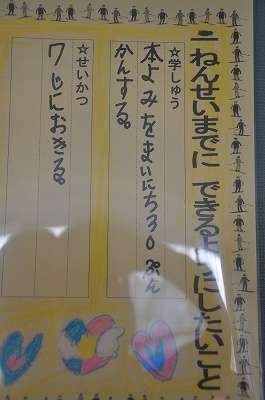 二ねんせいまでに できるようにしたいこと
☆学しゅう
本よみをまいにち30ぷん
かんする。
☆せいかつ
7じにおきる。